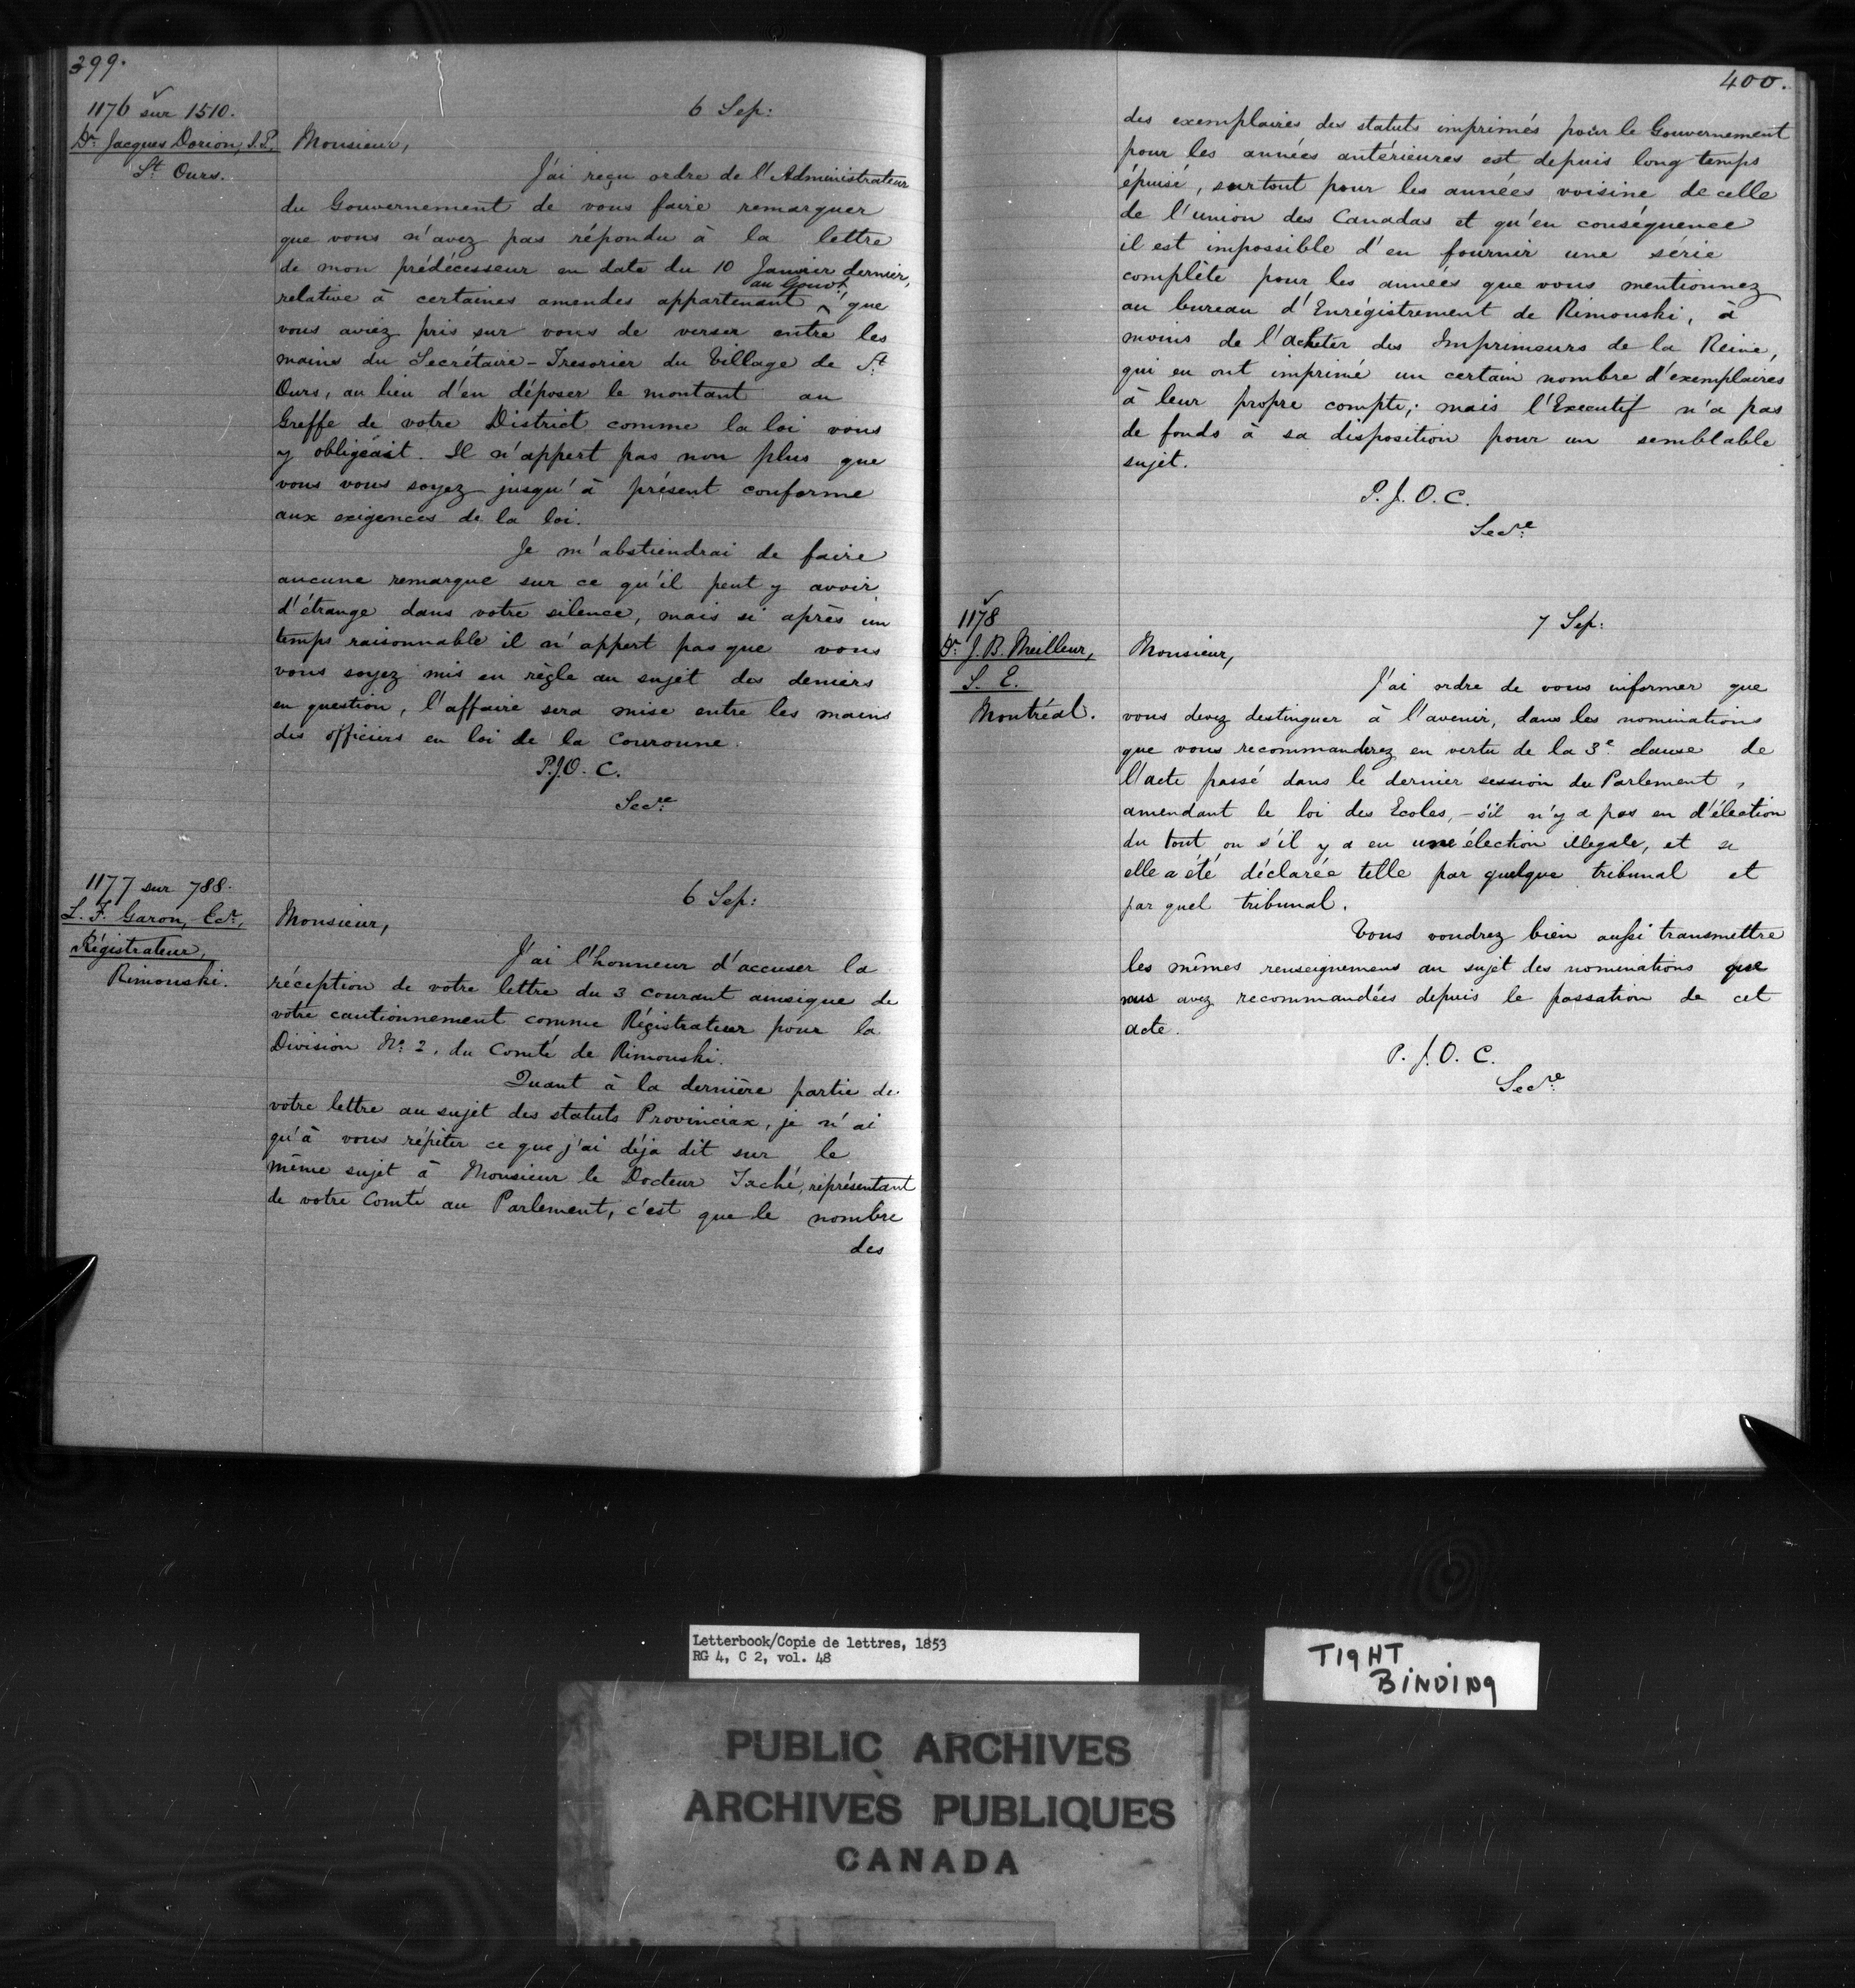 399.
1176 sur 1510.
6 Sep:
Dr. Jacques Dorion, J.P.
St. Ours.
Monsieur,
J'ai reçu ordre de l'Administrateur
du Gouvernement de vous faire remarquer
que vous n'avez pas répondu à la lettre
de mon prédécesseur en date du 10 Janvier dernier,
au Gouvt.
relative à certaines amendes appartenant ^ que
vous aviez pris sur vous de verser entre les
mains du Secrétaire-Tresorier du Village de St.
Ours, au lieu d'en déposer le montant au
Greffe de votre District comme la loi vous
y obligeait. Il n'appert pas non plus que
vous vous soyez jusqu'à présent conforme
aux exigences de la loi.
Je m'abstiendrai de faire
aucune remarque sur ce qu'il peut y avoir
d'étrange dans votre silence, mais si après un
temps raisonnable il n'appert pas que vous
vous soyez mis en règle au sujet des deniers
en question, l'affaire sera mise entre les mains
des officiers en loi de la Couronne.
P.J.O. C.
Secre
1177 sur 788.
6 Sep:
L. F. Garon, Ecr.,
Régistrateur,
Rimouski.
Monsieur,
J'ai l'honneur d'accuser la
réception de votre lettre du 3 courant ainsique de
votre cautionnement comme Régistrateur pour la
Division No. 2, du Comté de Rimouski.
Quant à la dernière partie de
votre lettre au sujet des statuts Provinciax, je n'ai
qu'à vous répéter ce que j'ai déja dit sur le
même sujet à Monsieur le Docteur Taché, représentant
de votre Comté au Parlement, c'est que le nombre
des
400.
des exemplaires des statuts imprimés pour le Gouvernement
pour les années antérieures est depuis long temps
épuisé, surtout pour les années voisine de celle
de l'union des Canadas et qu'en conséquence
il est impossible d'en fournir une série
complète pour les années que vous mentionnez
au bureau d'Enrégistrement de Rimouski, à
moins de l'acheter des Imprimeurs de la Reine,
qui en ont imprimé un certain nombre d'exemplaires
à leur propre compte; mais l'Executif n'a pas
de fonds à sa disposition pour un semblable
sujet.
P. J. O. C.
Secre
1178
7 Sep:
Dr. J. B. Meilleur,
S. E.
Montréal.
Monsieur,
J'ai ordre de vous informer que
vous devez destinguer à l'avenir, dans les nominations
que vous recommanderez en vertu de la 3e clause de
l'acte passé dans le dernier session du Parlement,
amendant le loi des Ecoles, - s'il n'y a pas eu d'élection
du tout ou s'il y a eu une élection illegale, et si
elle a été déclarée telle par quelque tribunal et
par quel tribunal.
Vous voudrez bien aussi transmettre
les mêmes renseignemens au sujet des nominations que
vous avez recommandées depuis le passation de cet
acte.
P. J. O. C.
Secre
Letterbook/Copie de lettres, 1853
RG 4, C 2, vol. 48
TIGHT
BINDING
PUBLIC ARCHIVES
ARCHIVES PUBLIQUES
CANADA